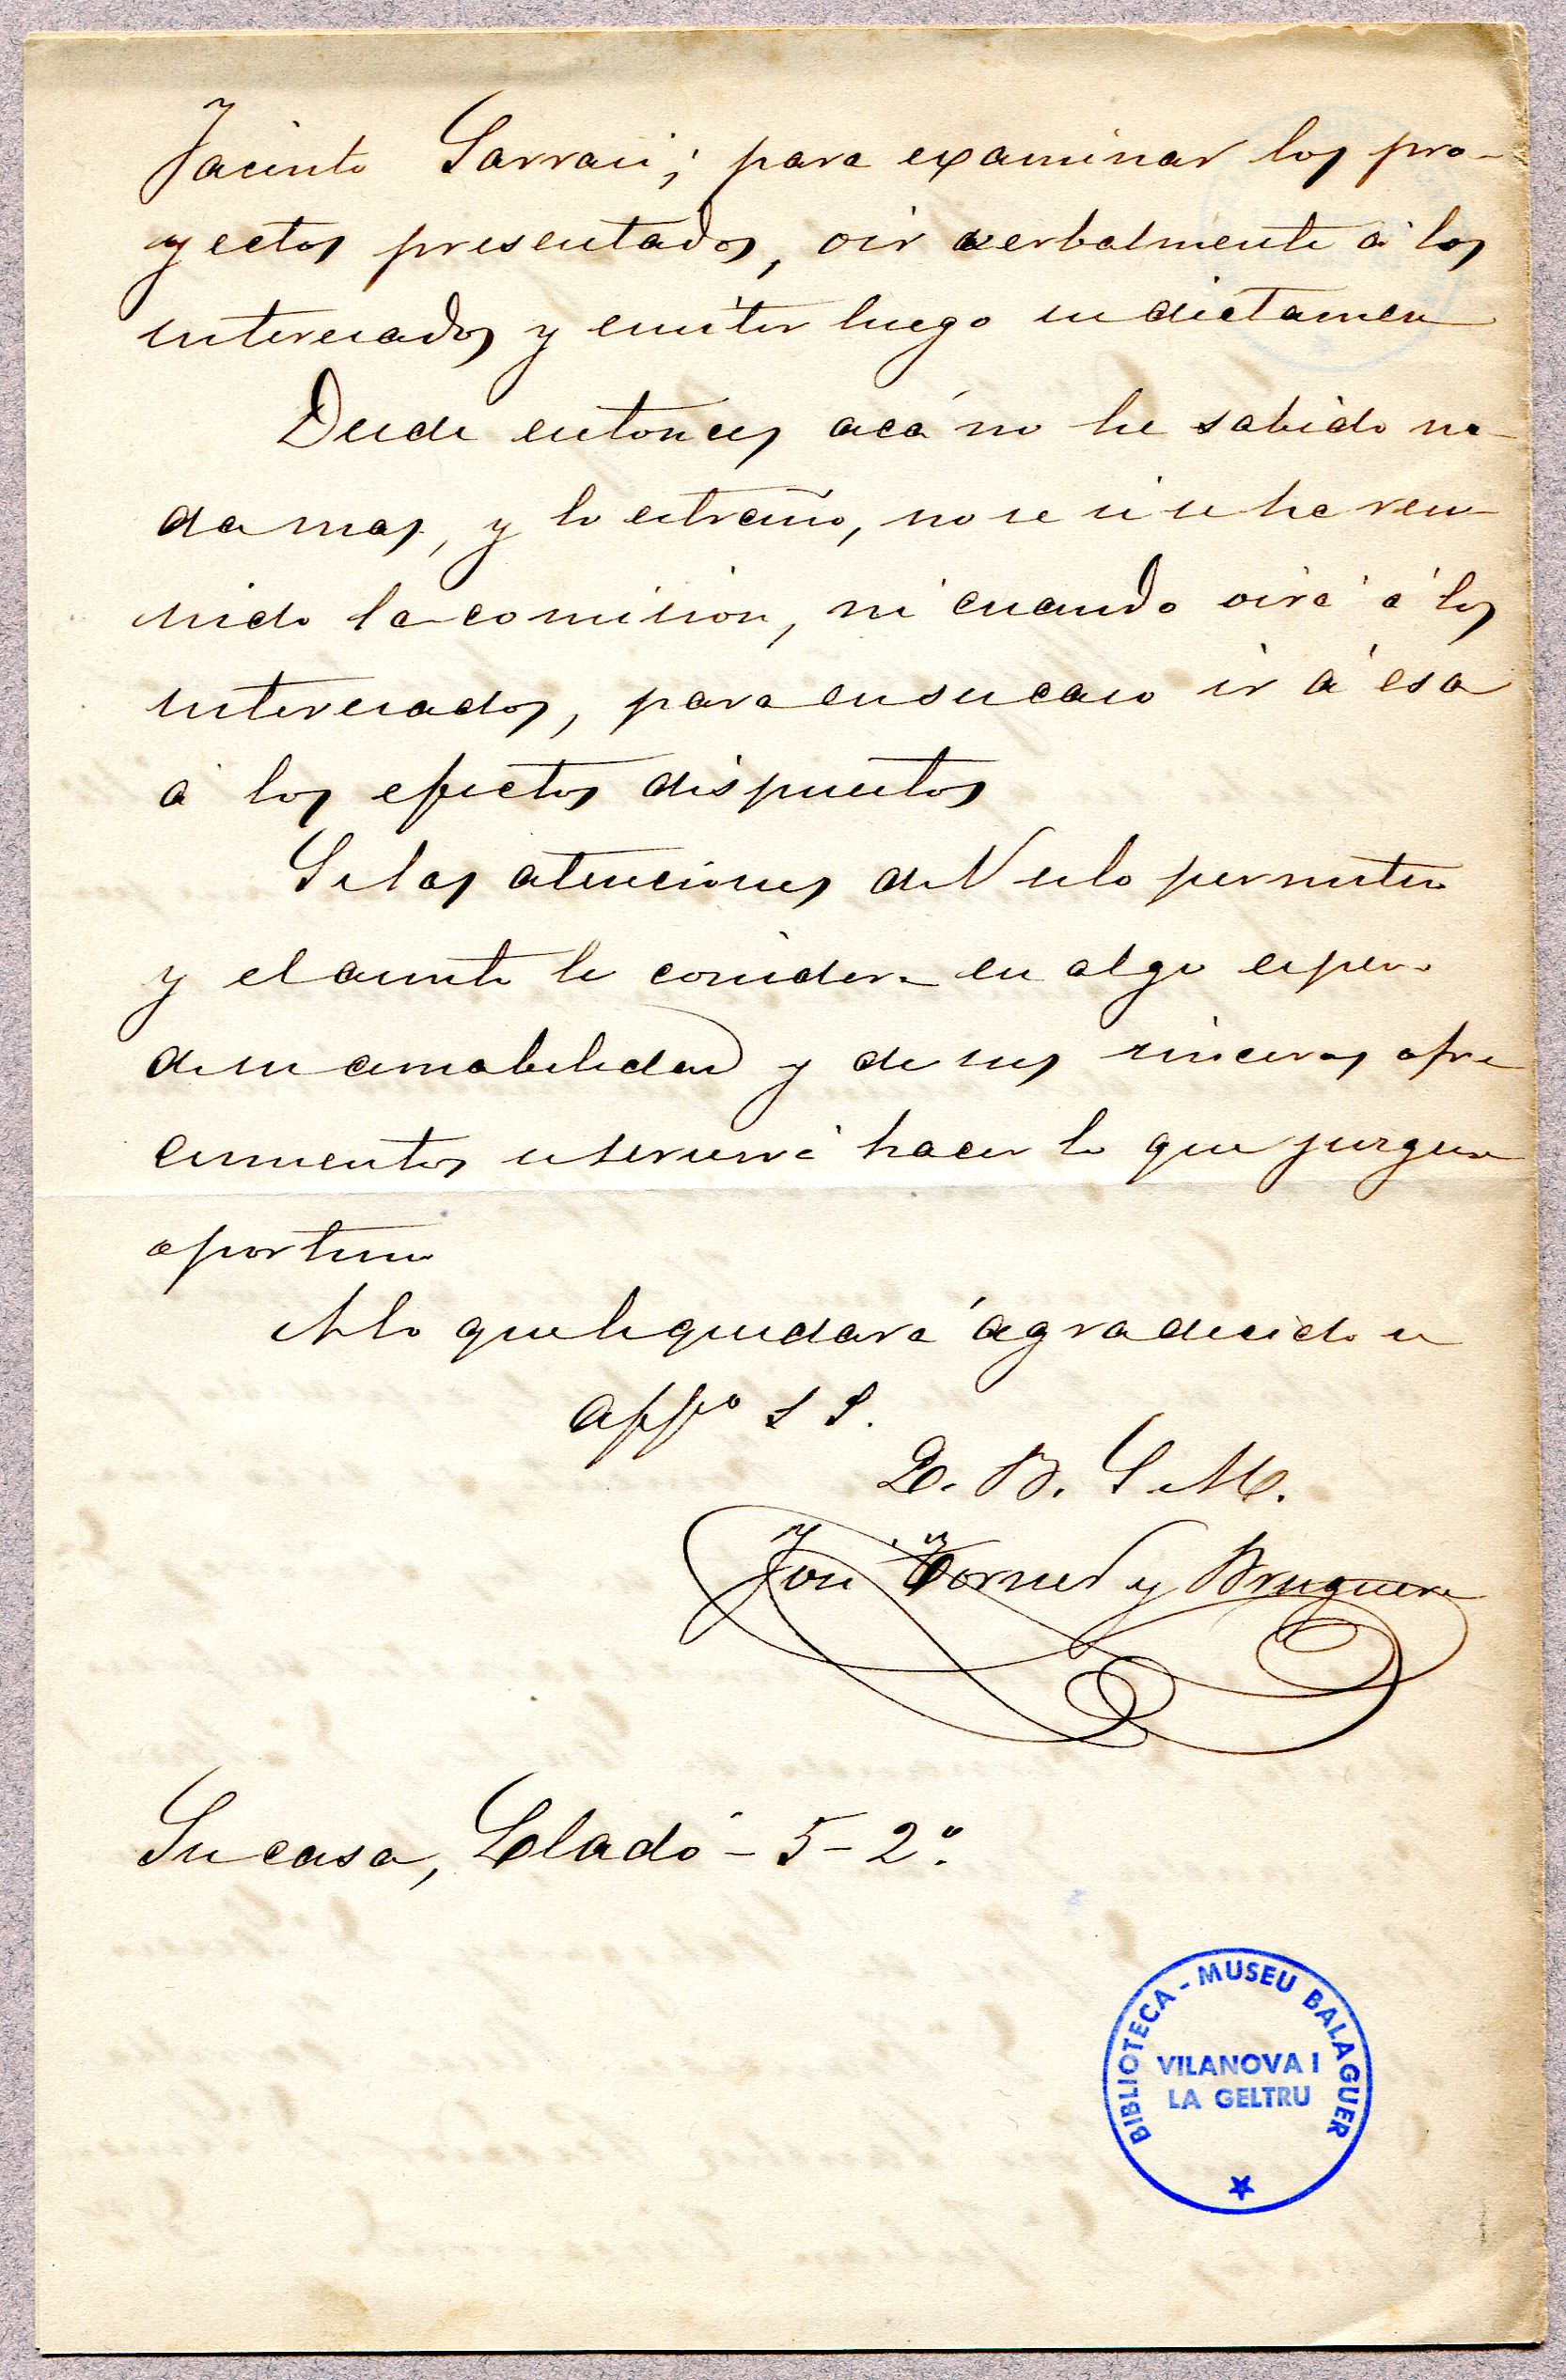 Jacinto Sarrasi; para examinar los pro-
yectos presentados, oir verbalmente á los
interesados y emitir luego su dictamen
Desde entonces acá no he sabido na-
da mas, y lo estraño, no se si se ha reu-
nido la comision, ni cuando oirá á los
interesados, para en su caso ir á esa
á los efectos dispuestos
Si las atenciones de V se lo permiten
y el asunto lo considera en algo espero
de su amabilidad y de sus sinceros ofre
cimientos se servirá hacer lo que juzgue
oportuno
A lo que le quedará agradecido su
affmo S S.
Q. B. S. M.
José Torner y Bruguera
Su casa, Lladó - 5 - 2º.
BIBLIOTECA - MUSEU BALAGUER
VILANOVA I
LA GELTRU